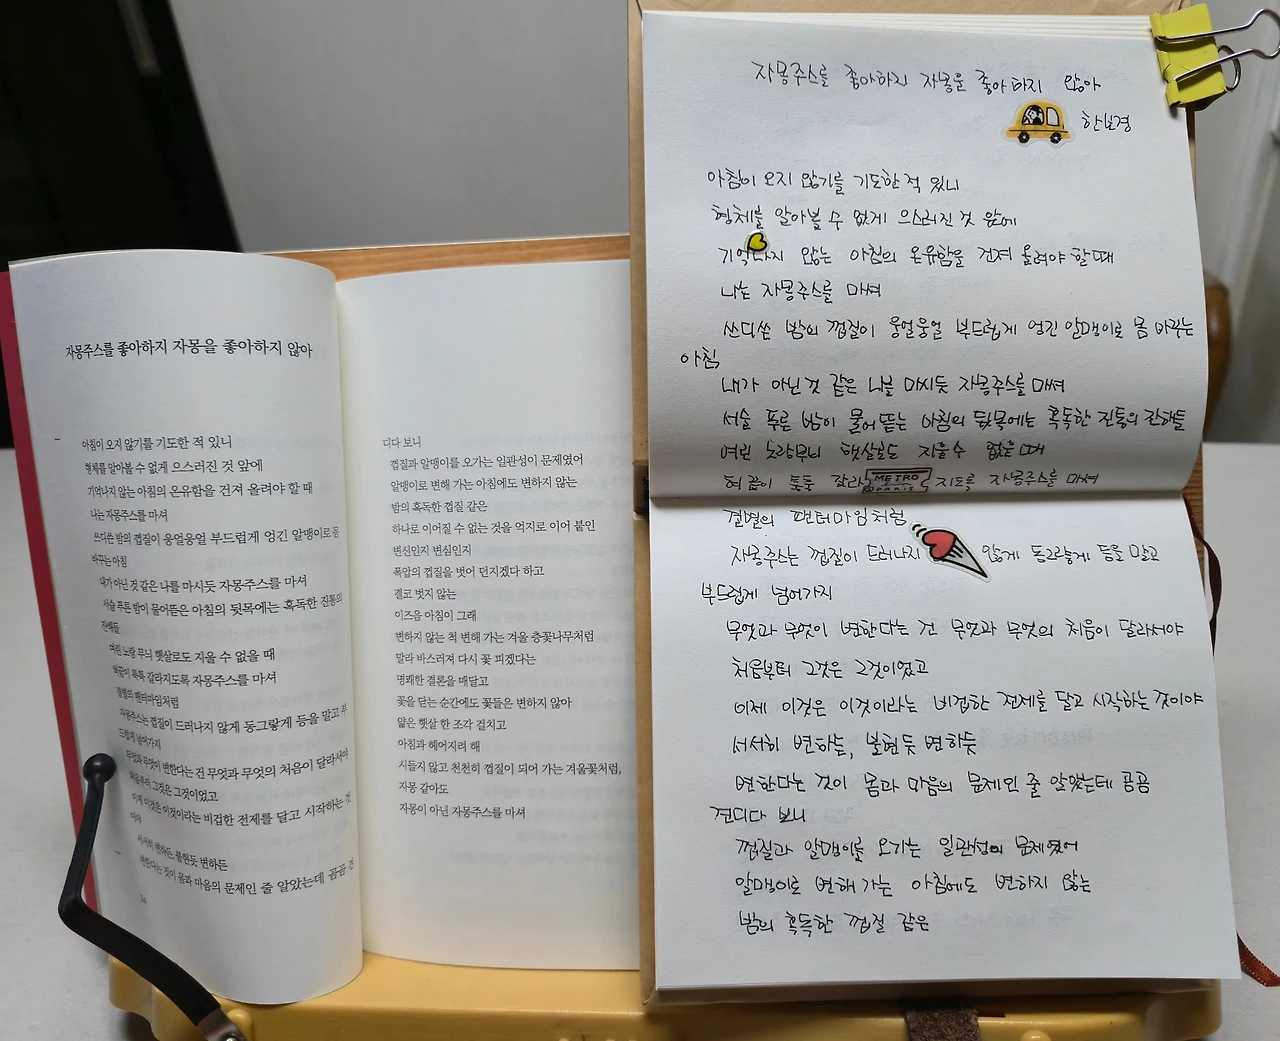 자몽주스를 좋아하지 자몽을 좋아하지 않아
아침이 오지 않기를 기도한 적 있니
형체를 알아볼 수 없게 으스러진 것 앞에
기억나지 않는 아침의 온유함을 건져 올려야 할 때
나는 자몽주스를 마셔
쓰디쓴 밤의 껍질이 웅얼웅얼 부드럽게 엉긴 알맹이로 몸
바꾸는 아침
내가 아닌 것 같은 나를 마시듯 자몽주스를 마셔
서슬 푸른 밤이 물어뜯은 아침의 뒷목에는 혹독한 진통의
잔해들
여린 노랑 무늬 햇살로도 지울 수 없을 때
혀끝이 툭툭 갈라지도록 자몽주스를 마셔
결별의 팬터마임처럼
자몽주스는 껍질이 드러나지 않게 동그랗게 등을 말고 부
드럽게 넘어가지
무엇과 무엇이 변한다는 건 무엇과 무엇의 처음이 달라서야
처음부터 그것은 그것이었고
이제 이것은 이것이라는 비겁한 전제를 달고 시작하는 것
이야
서서히 변하든, 불현듯 변하든
변한다는 것이 몸과 마음의 문제인 줄 알았는데 곰곰 견
34
디다 보니
껍질과 알맹이를 오가는 일관성이 문제였어
알맹이로 변해 가는 아침에도 변하지 않는
밤의 혹독한 껍질 같은
하나로 이어질 수 없는 것을 억지로 이어 붙인
변신인지 변심인지
폭압의 껍질을 벗어 던지겠다 하고
결코 벗지 않는
이즈음 아침이 그래
변하지 않는 척 변해 가는 겨울 층꽃나무처럼
말라 바스러져 다시 꽃 피겠다는
명쾌한 결론을 매달고
꽃을 닫는 순간에도 꽃들은 변하지 않아
얇은 햇살 한 조각 걸치고
아침과 헤어지려 해
시들지 않고 천천히 껍질이 되어 가는 겨울꽃처럼,
자몽 같아도
자몽이 아닌 자몽주스를 마셔
자몽주스를 좋아하지 자몽을 좋아하지 않아
한보경
아침이 오지 않기를 기도한 적 있니
형체를 알아볼 수 없게 으스러진 것 앞에
기억나지 않는 아침의 온유함을 건져 올려야 할 때
나는 자몽주스를 마셔
쓰디쓴 밤의 껍질이 웅얼웅얼 부드럽게 엉긴 알맹이로 몸 바꾸는
아침
내가 아닌 것 같은 나를 마시듯 자몽주스를 마셔
서슬 푸른 밤이 물어뜯는 아침의 뒷목에는 혹독한 진통의 잔해들
여린 노랑무늬 햇살로도 지울 수 없을 때
혀끝이 툭툭 갈라 METRO 지도록 자몽주스를 마셔
결별의 팬터마임처럼
자몽주스는 껍질이 드러나지 않게 동그랗게 등을 말고
부드럽게 넘어가지
무엇과 무엇이 변한다는 건 무엇과 무엇의 처음이 달라서야
처음부터 그것은 그것이었고
이제 이것은 이것이라는 비겁한 전제를 달고 시작하는 것이야
서서히 변하든, 불현듯 변하듯
변한다는 것이 몸과 마음의 문제인 줄 알았는데 곰곰
견디다 보니
껍질과 알맹이를 오가는 일관성이 문제였어
알맹이로 변해 가는 아침에도 변하지 않는
밤의 혹독한 껍질 같은